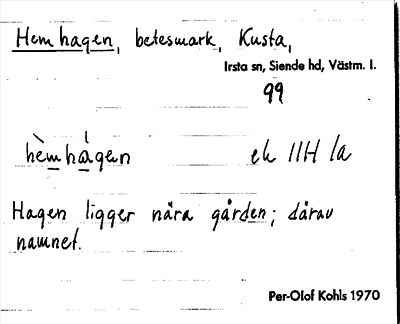 Hemhagen, betesmark, Kusta,
Irsta sn, Siende hd, Västm. l.
99
hèmhágen ek IIH 1a
Hagen ligger nära gården; därav
namnet.
Per-Olof Kohls 1970